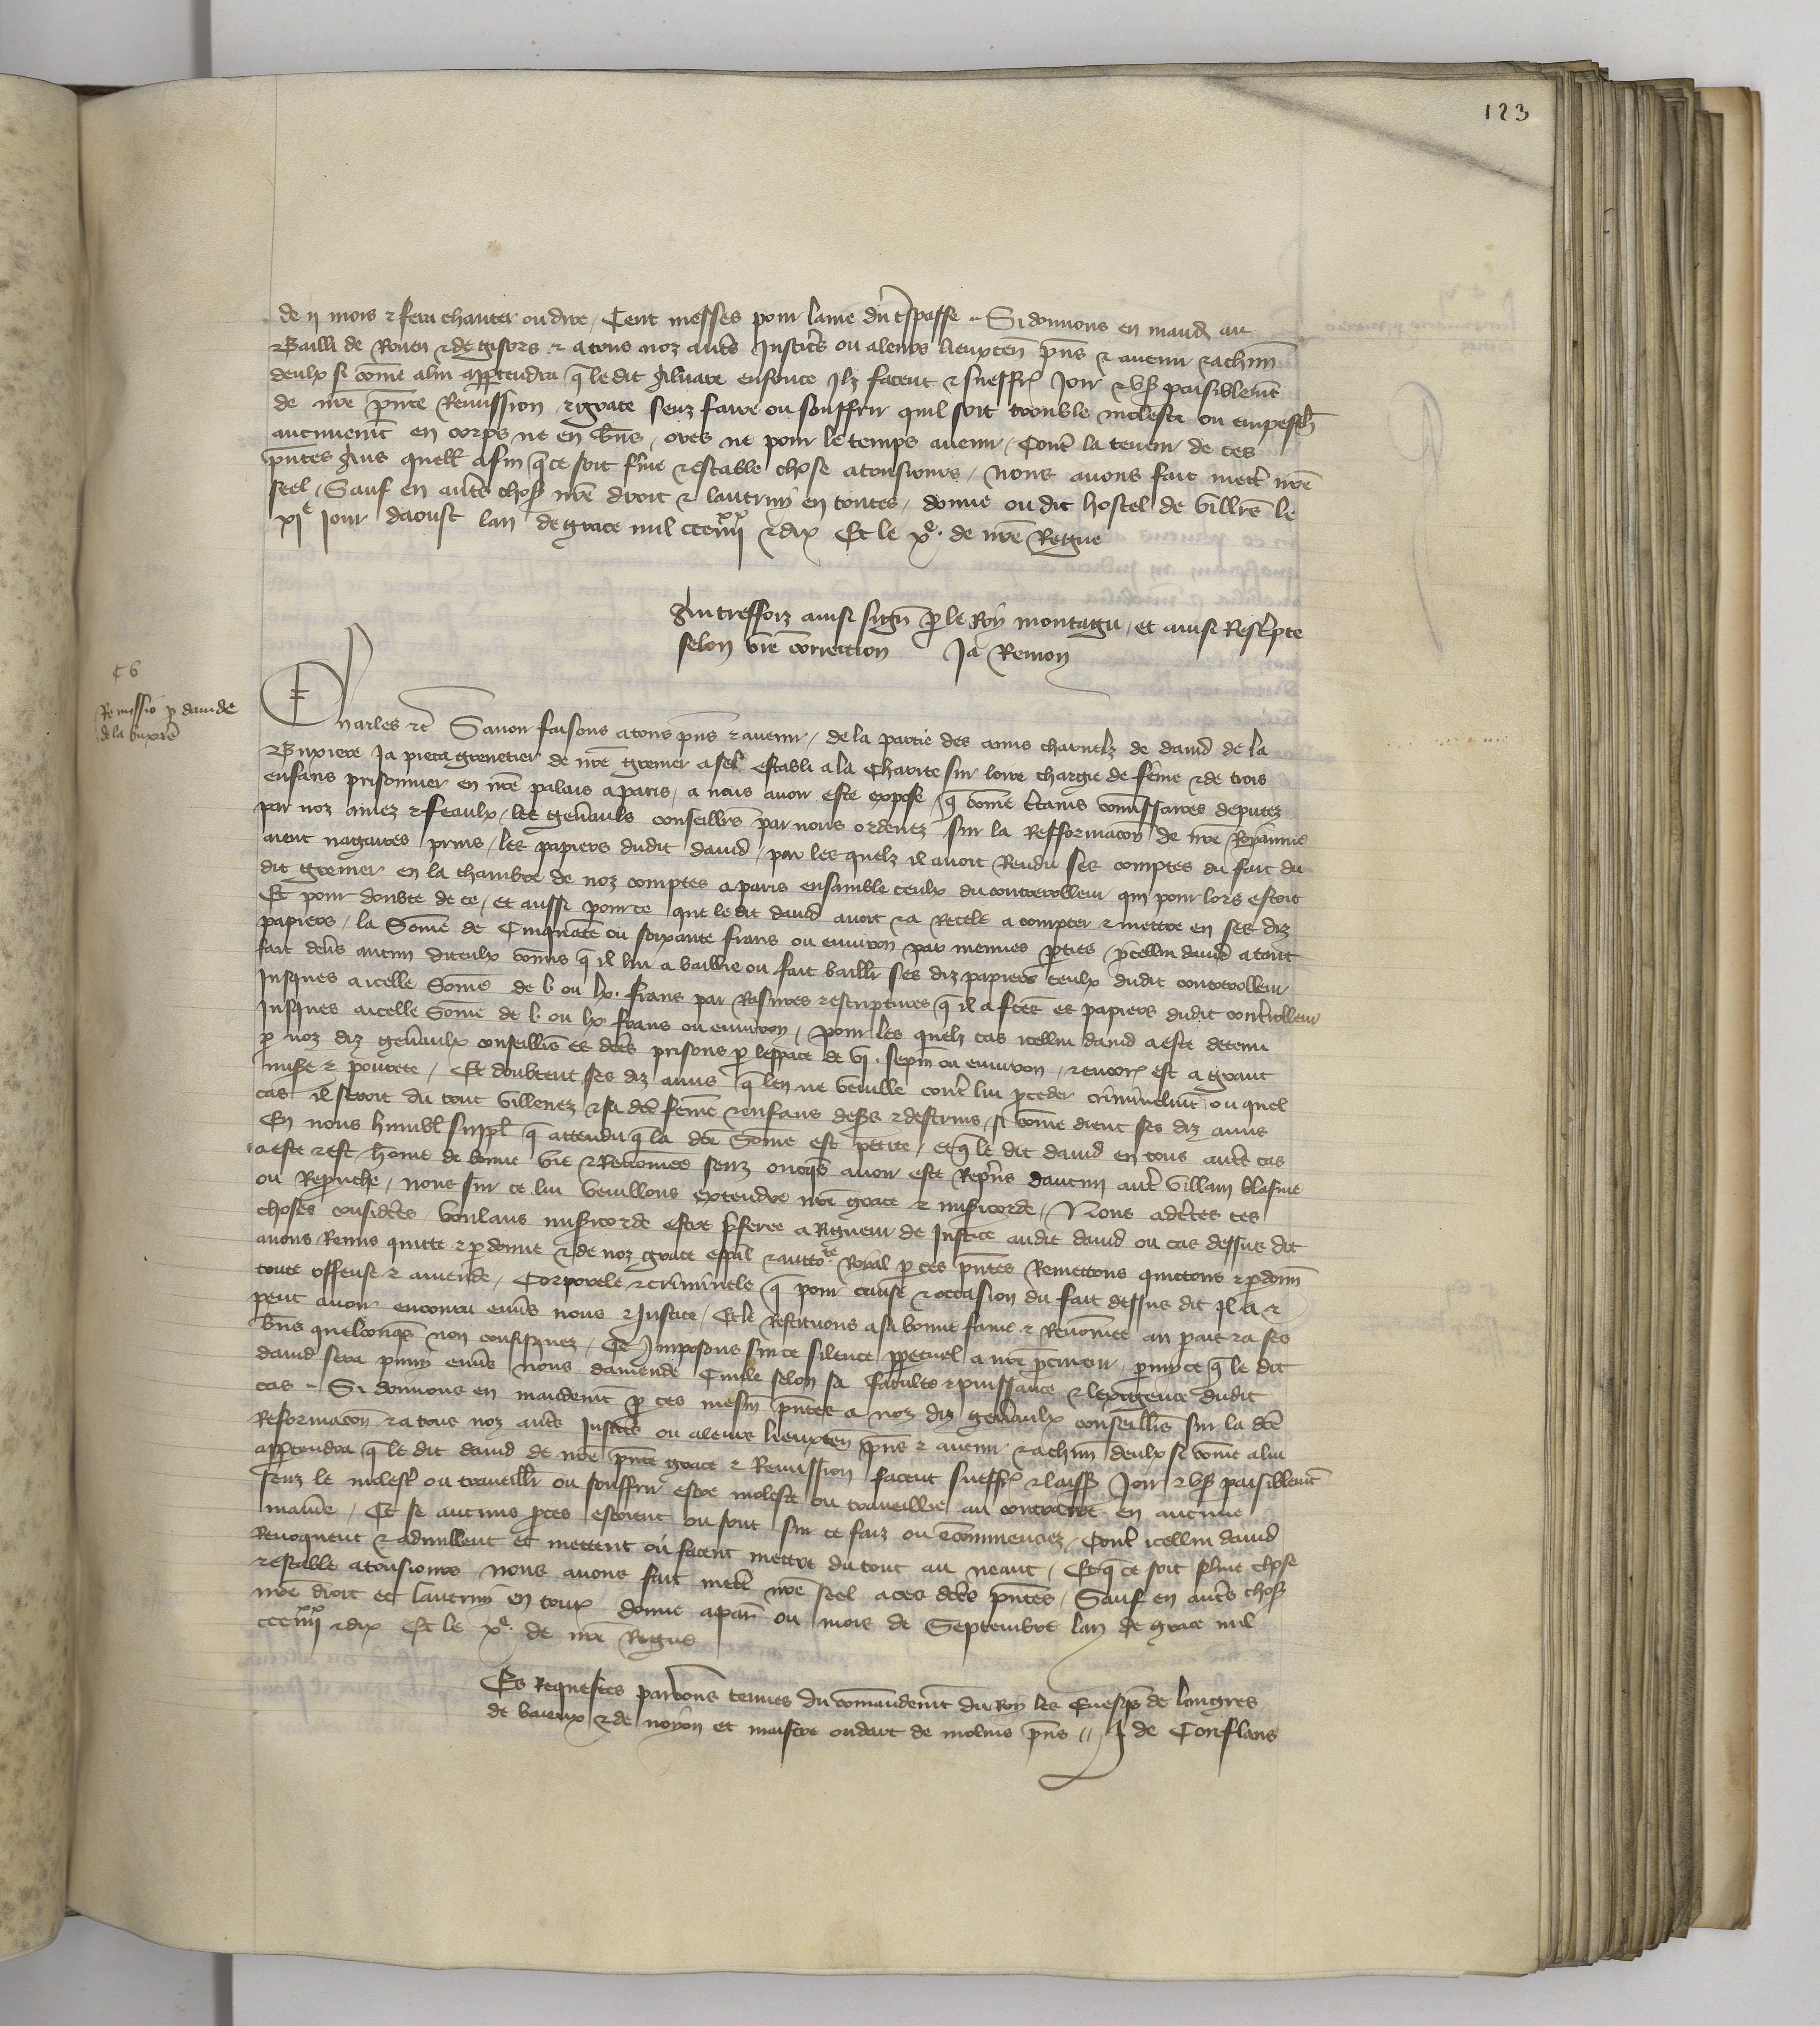 123
de ij mois & fera chanter ou dire / Cent messes pour lame du t̃spasse .. Si donnons en mand̃ au
Bailli de Rouen & de gisors & a tous noz autr̃s Justic̃rs ou a leurs lieuxteñ p̃ns & auenir & a chũn
deulx si com̃e a lui app̃rtendra q̃ le dit Aluare enfonce Ilz facent & sueffr̃ Joir & vs̃ paisiblem̃t
de nr̃e p̃nte Remission & grace senz faire ou souffrir quil soit trouble moleste ou empesch̃
aucunem̃t en corps ne en biẽs / ores ne pour le temps auenir / Cont̃ la teneur de ces
p̃ntes Ains quelł afin q̃ ce soit fer̃me & estable chose a tousiours / nous auons fait mett̃ nr̃e
seel / Sauf en autr̃s chos̃ nr̃e droit & lautruy en toutes / donne ou dit hostel de
xje Jour daoust lan de grace mil ccc iiijxx & dix Et le xe. de nr̃e Regne
Autreffoiz ainsi sign̄ p̱ le Roy montagu / et ainsi Resc̃pte
selon vr̃e correction Ja Remon
C6
Remissio p̱ dauide
de la buxiẽ
Charles &c̃ Sauoir faisons a tous p̃ns & auenir / de la partie des amis charnelz de dauid de la
Buxiere Ja pieca grenetier de nr̃e grenier a sel establi a la Charite sur loire chargie de fẽme & de trois
enfans prisonnier en nr̃e palais a paris / a nous auoir este expose / q̃ com̃e c̃tains com̃issaires deputez
par noz amez & feaulx / les gen̄aulx conseill̃rs par nous ordenez sur la Refformac̃on de nr̃e Royaume
aient nagaires prins / les papiers dudit dauid / par les quelz il auoit Rendu ses comptes du fait du
dit grenier en la chambre de noz comptes a paris ensamble ceulx du contrerolleur qui pour lors estoit
Et pour doubte de ce / et aussi pource que le dit dauid auoit & a Recele a compter & mettre en ses diz
papiers / la Som̃e de Cinquãte ou soixante frans ou enuiron par menues p̱ties / ycellui dauid a tant
fait deũs aucun diceulx com̃is q̃ il lui a baillie ou fait bailler ses diz papiers ceulx dudit contrerolleur
Jusques a icelle Som̃e de l. ou lx. frans par Rasures & escriptures q̃ il a fc̃es es papiers dudit cont̃rolleur
Jusques a icelle Som̃e de l. ou lx frans ou enuiron / pour les quelz cas icellui dauid a este detenu
p̱ noz diz gen̄aulx conseill̃rs es dc̃es prisons p̱ lespace de vj. sepm̃ ou enuiron / & encor̃ est a grant
misẽ & pourete / Et doubtent ses diz amis q̃ len ne vueille cont̃ lui p̱ceder criminelm̃t ou quel
cas il seroit du tout villenez & sa dc̃e fem̃e & enfans desers & destruis / si com̃e dient ses diz amis
En nous humbl̃ suppł q̃ attendu q̃ la dc̃e Som̃e est petite / et q̃ le dit dauid en tous autr̃s cas
a este & est hom̃e de bonne vie & Renom̃ee senz onq̃s auoir este Rep̃ns daucun aut̃ villain blasme
ou Reprouche / nous sur ce lui vueillons extendre nr̃e grace & misericorde / Nous adc̃tes ces
choses considerees voulans misericorde estre p̃feree a Rigueur de Justice audit dauid ou cas dessus dit
auons Remis quitte & p̱donne & de noz grace esp̃al & auctote Royal p̱ ces p̃ntes Remettons quictons & p̱donñ
toute offense & amende / Corporele & criminele q̃ pour cause & occasion du fait dessus dit Il a &
peut auoir encouru enũs nous & Justice / Et le Restituons a sa bonne fame & Renom̃ee au pais & a ses
biẽs quelconq̃s non confisquez / Et Imposons sur ce silence p̱petuel a nr̃e p̱cureur / p̱my ce q̃ le dit
dauid sera puny enũs nous damende Ciuile selon sa faculte & puissance & lexigence dudit
cas .. Si donnons en mandem̃t p̱ ces mesm̃ p̃ntes a noz diz gen̄aulx conseill̃rs sur la dc̃e
Reformac̃on & a tous noz autr̃s Justic̃s ou a leurs lieuxteñ p̃ns & auenir & a chũn deulx si com̃e a lui
app̱tendra q̃ le dit dauid de nr̃e p̃nte grace & Remission facent sueffr̃ & laiss̃ Joir & vs̃ paisiblem̃t
senz le molest̃ ou traueillr̃ ou souffrir estre moleste ou traueillie au contraire en aucune
maniẽ / Et se aucuns p̱ces estoient ou sont sur ce faiz ou encommenciez / Cont̃ icellui dauid
Reuoquent & adnullent et mettent ou facent mettre du tout au neant / Et q̃ ce soit ferme chose
& estable a tousiours nous auons fait mett̃ nr̃e seel a ces dc̃es p̃ntes / Sauf en autr̃s chos̃
nr̃e droit et lautruy en tout̃ donne a par̃ ou mois de Septembre lan de grace mil
ccc iiijxx & dix Et le xe. de nr̃e Regne
Es Requestes par vous tenues du com̃andem̃t du Roy les Euesq̃s de langres
de baieux & de noyon et maistre oudart de molins p̃ns // J de Conflans